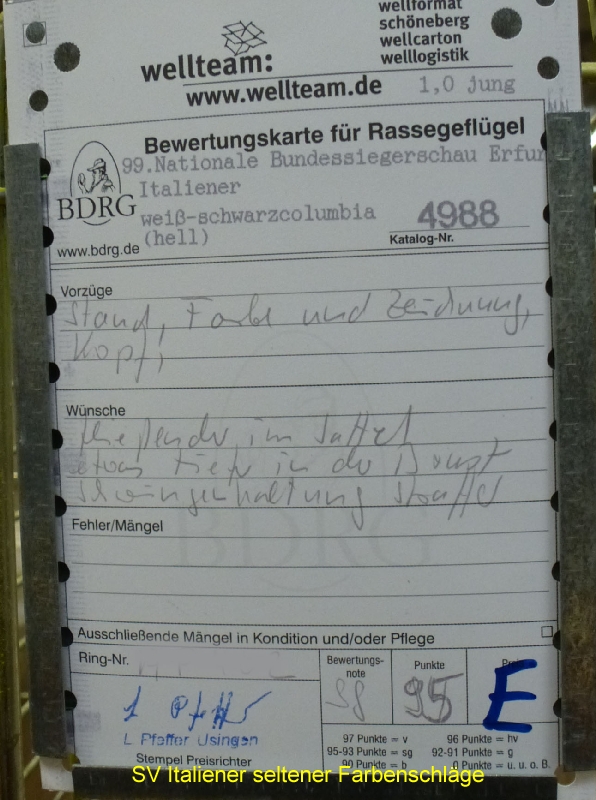 wellformat
schöneberg
wellcarton
welllogistik
wellteam:
www.wellteam.de
1,0 jung
Bewertungskarte für Rassegeflügel
99.Nationale Bundessiegerschau Erfur
Italiener
BDRG
weiß-schwarzcolumbia
4988
(hell)
www.bdrg.de
Katalog-Nr.
Vorzüge
Stand, Farbe und Zeichnung,
Kopf,
Wünsche
fließender im Sattel
etwas tiefer in der Brust
Schwingenhaltung straffer
Fehler/Mängel
BDRG
Ausschließende Mängel in Kondition und/oder Pflege
Ring-Nr.
Bewertungs-
note
Punkte
Preis
sg
95
E
L Pfeffer Usingen
Stempel Preisrichter
97 Punkte = v 96 Punkte = hv
95-93 Punkte = sg 92-91 Punkte = g
90 Punkte = b 0 Punkte = u. u. o. B.
SV Italiener seltener Farbenschläge